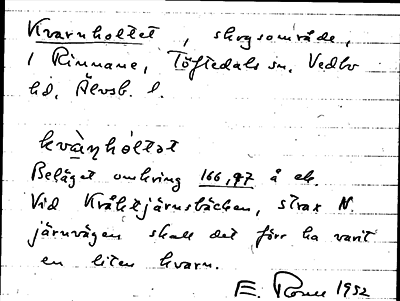 Kvarnholtet, skogsområde,
i Rinnane, Töftedals sn. Vedbo
hd. Älvsb. l.
kvàṇhòltət
Beläget omkring 166,97 å ek.
Vid Kråktjärnsbäcken, strax N.
järnvägen skall det förr ha varit
en liten kvarn.
E. 1952